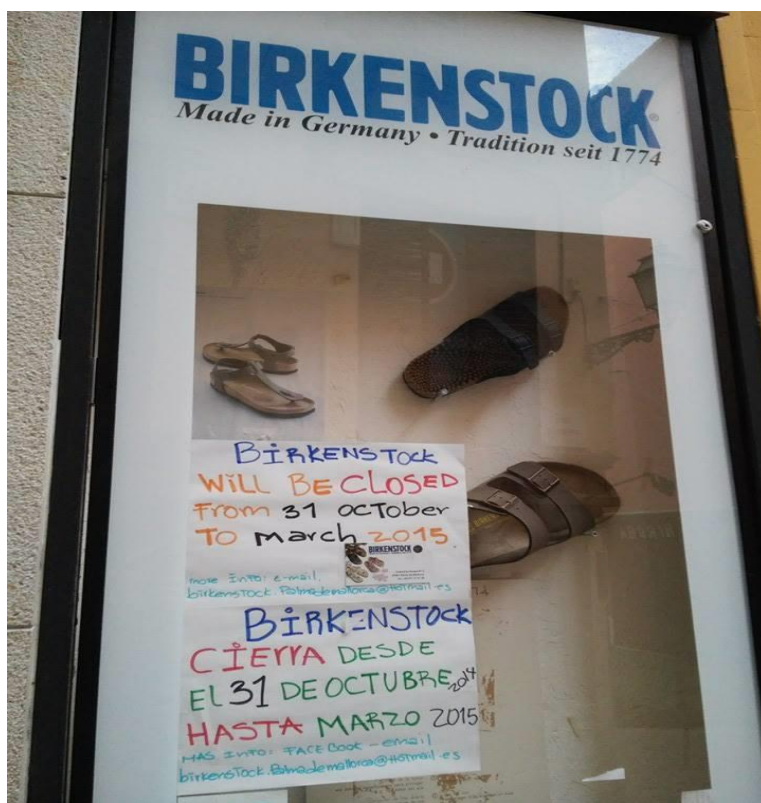 BIRKENSTOCK
Made in Germany • Tradition seit 1774
BIRKENSTOCK
WILL BE CLOSED
From 31 OCTober
To march 2015
BIRKENSTOCK
more INFO: e-mail
birkenstock.Palmademallorca@HOTmail.es
BIRKENSTOCK
CIERRA DESDE
EL 31 DE OCTUBRE 2014
HASTA MARZO 2015
MAS INFO: FACEBook - email
birkenstock.Palmademallorca@HOTmail.es